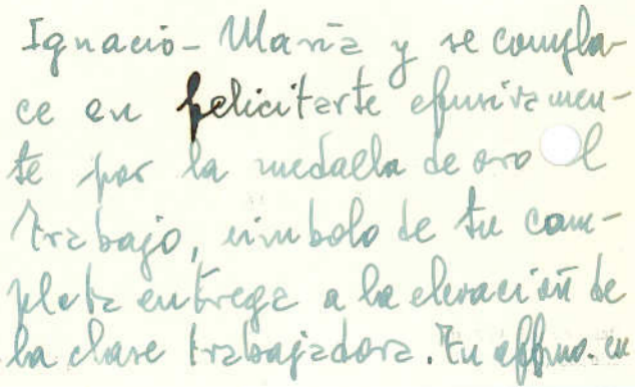 Ignacio-María y se compla-
ce en felicitarte efusivamen-
te por la medalla de oro al
trabajo, símbolo de tu com-
pleta entrega a la elevación de
la clase trabajadora. Tu affmo. en